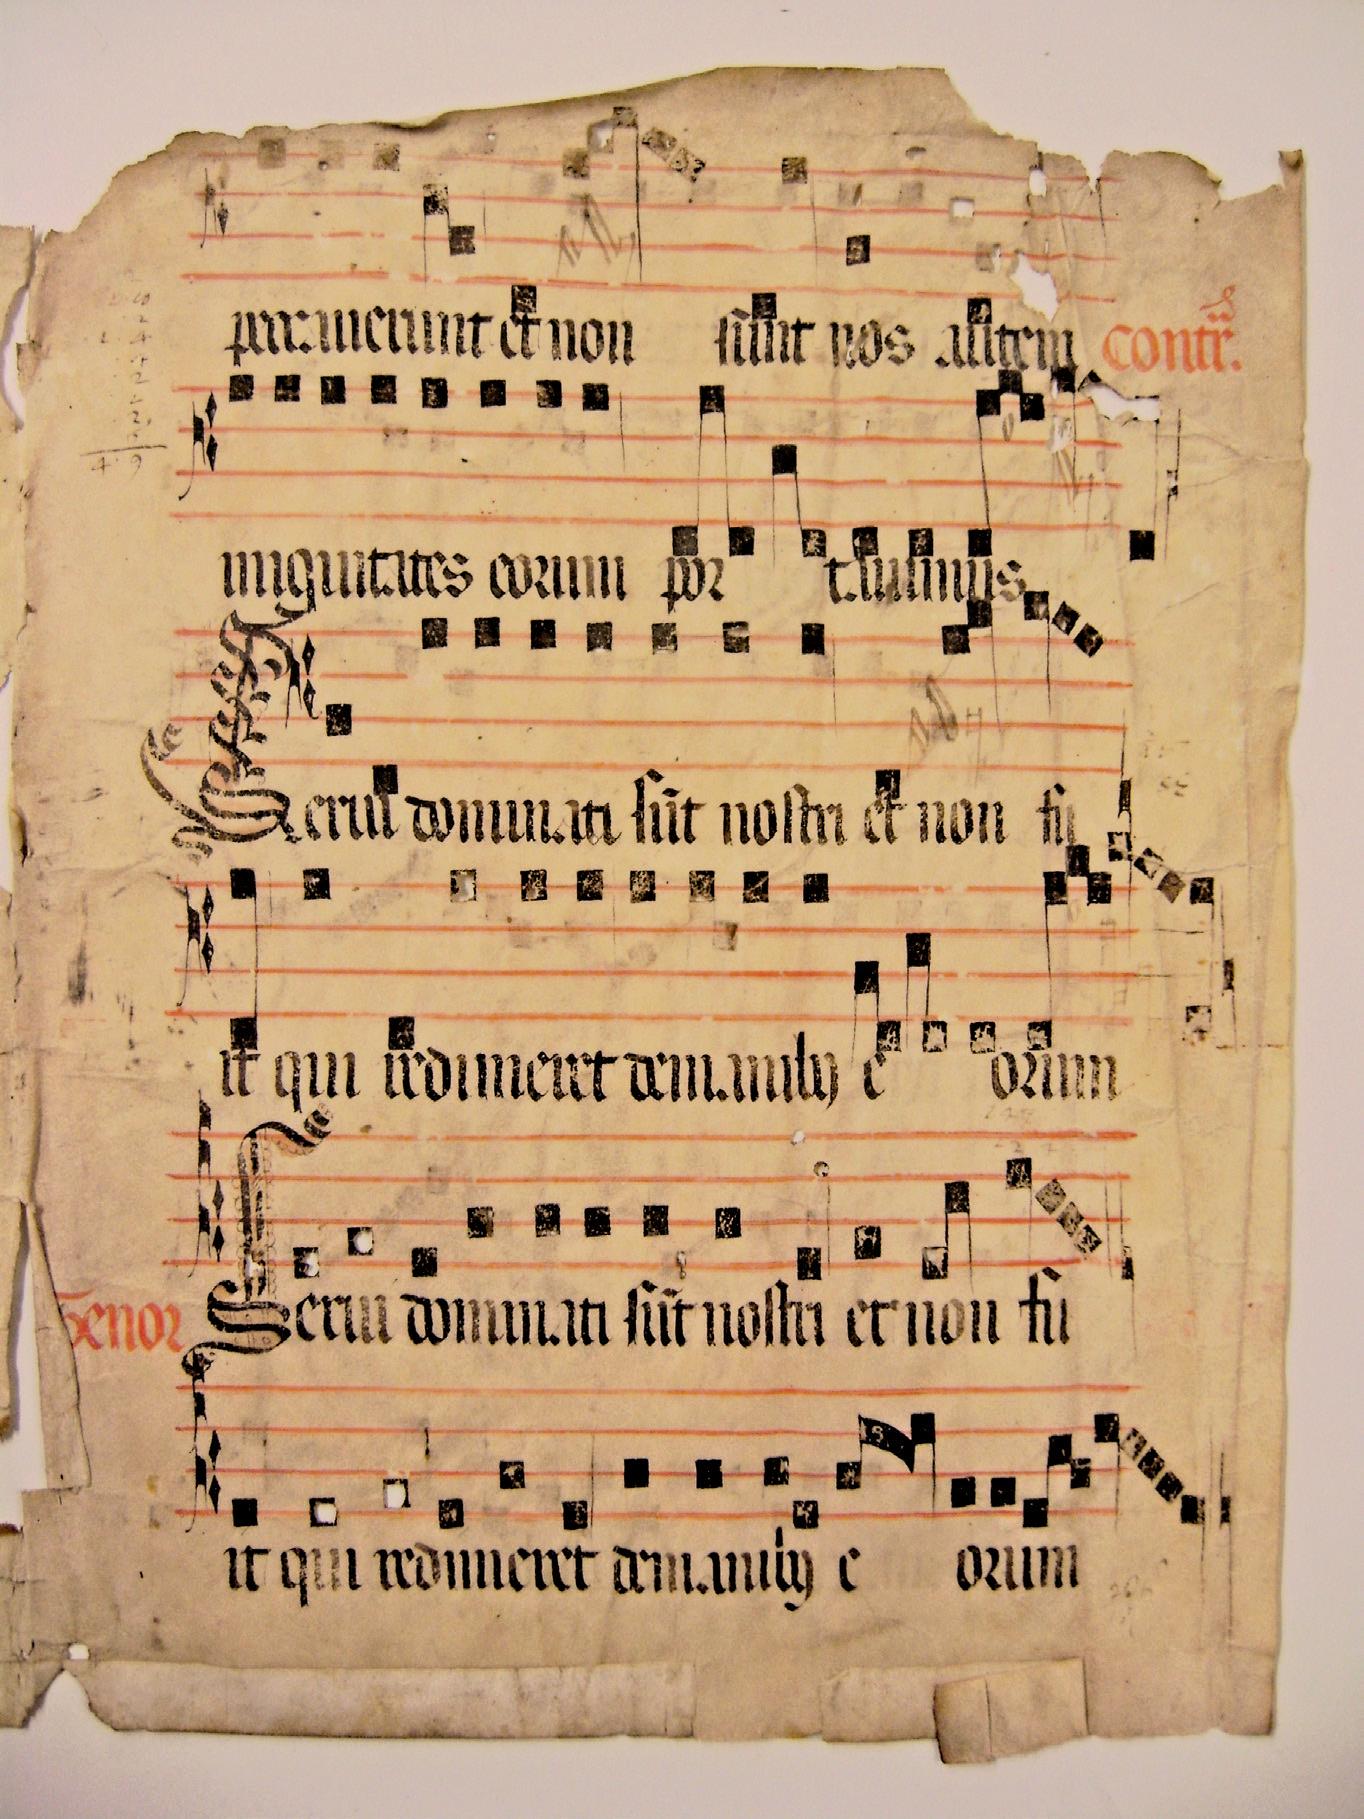 peccauerunt et non sunt nos autem contr̃.
iniquitates eorum por tauimus
Serui dominati sũt nostri et non fu
it qui redimeret de manibȝ e orum
Serui dominati sũt nostri et non fu
Tenor
it qui redimeret de manibȝ e orum